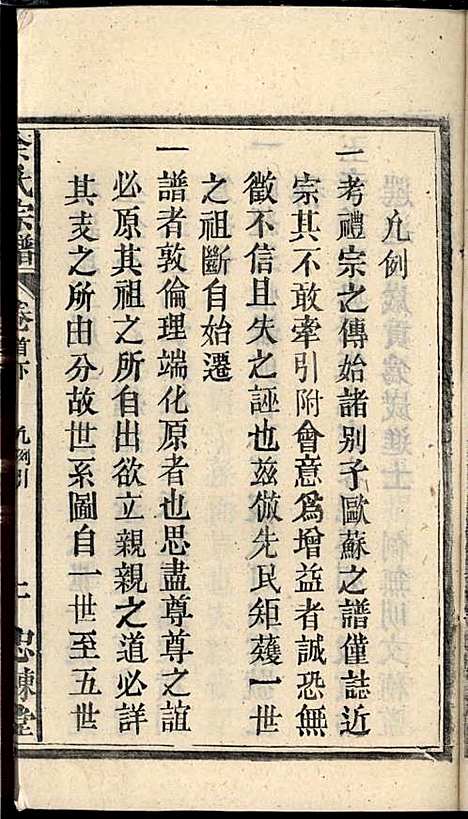 凡例
一考禮宗之傳始諸別子歐蘇之譜僅誌近
宗其不敢牽引附會意為增益者誠恐無
徵不信且失之誣也茲倣先民矩蒦一世
之祖斷自始遷
一譜者敦倫理端化原者也思盡尊尊之誼
必原其祖之所自出欲立親親之道必詳
其支之所由分故世系圖自一世至五世
氏宗譜 卷首下 凡例引 忠諫堂